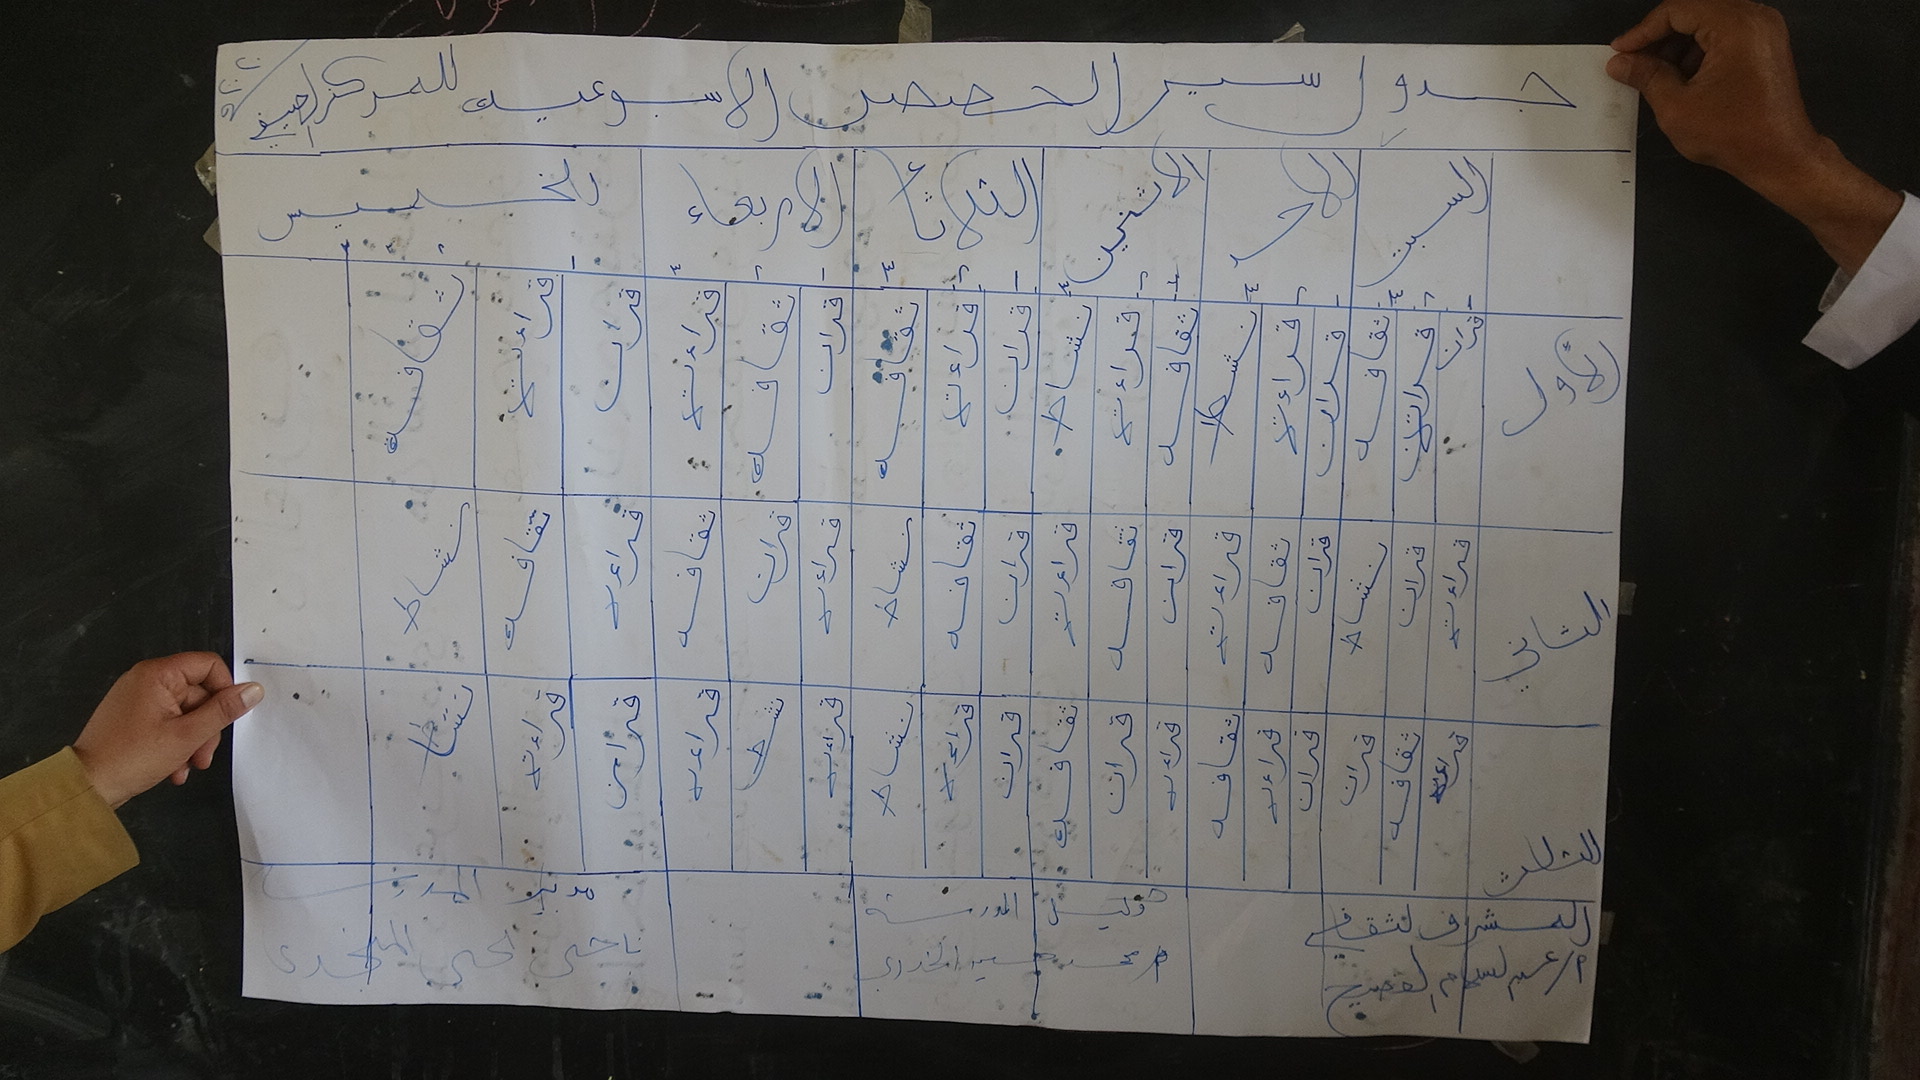 جدول سير الحصص الاسبوعيه للمركز الصيفي
السبت الاحد الاثنين الثلاثأ الاربعاء الخميس
١ ٢ ٣ ١ ٢ ٣ ١ ٢ ٣ ١ ٢ ٣ ١ ٢ ٣ ١ ٢ ٣
الأول قران قراءة ثقافه قران قراءة نشط ثقافه قراءة نشاط قران قراءة ثقافه قران ثقافه قراءة قران قراءة ثقافه
الثاني قراءة قران نشاط قران ثقافه قراءة قران ثقافه قراءة قران ثقافه نشاط قراءة قران ثقافه قراءة ثقافه نشاط
الثالث قراءة ثقافه قران قران قراءة ثقافه قراءة قران ثقافه قران قراءة نشاط قراءة نشط قراءة قران قراءة نشاط
المشرف الثقافي وكيل المدرسة مدير المدرسة